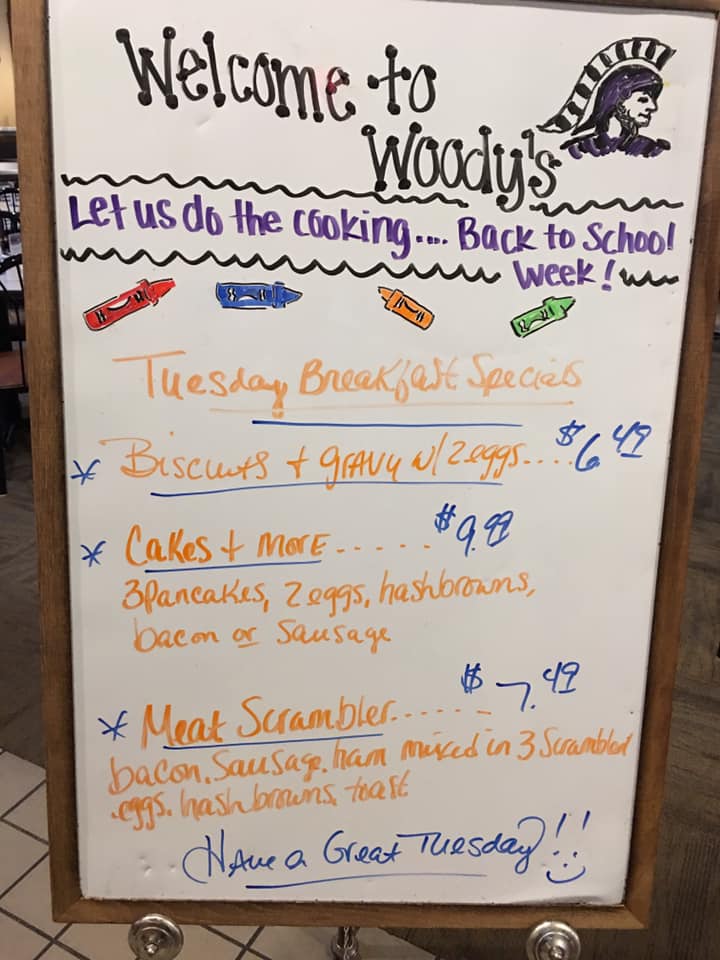 Welcome to
Woody's
Let us do the cooking.... Back to School
Week!
Tuesday Breakfast Specials
* Biscuits + gravy w/ 2 eggs.... $6.49
* Cakes + More ..... $9.99
3 Pancakes, 2 eggs, hashbrowns,
bacon or Sausage
* Meat Scrambler...... $7.49
bacon, Sausage, ham mixed in 3 Scrambled
eggs, hashbrowns, toast
Have a Great Tuesday!!